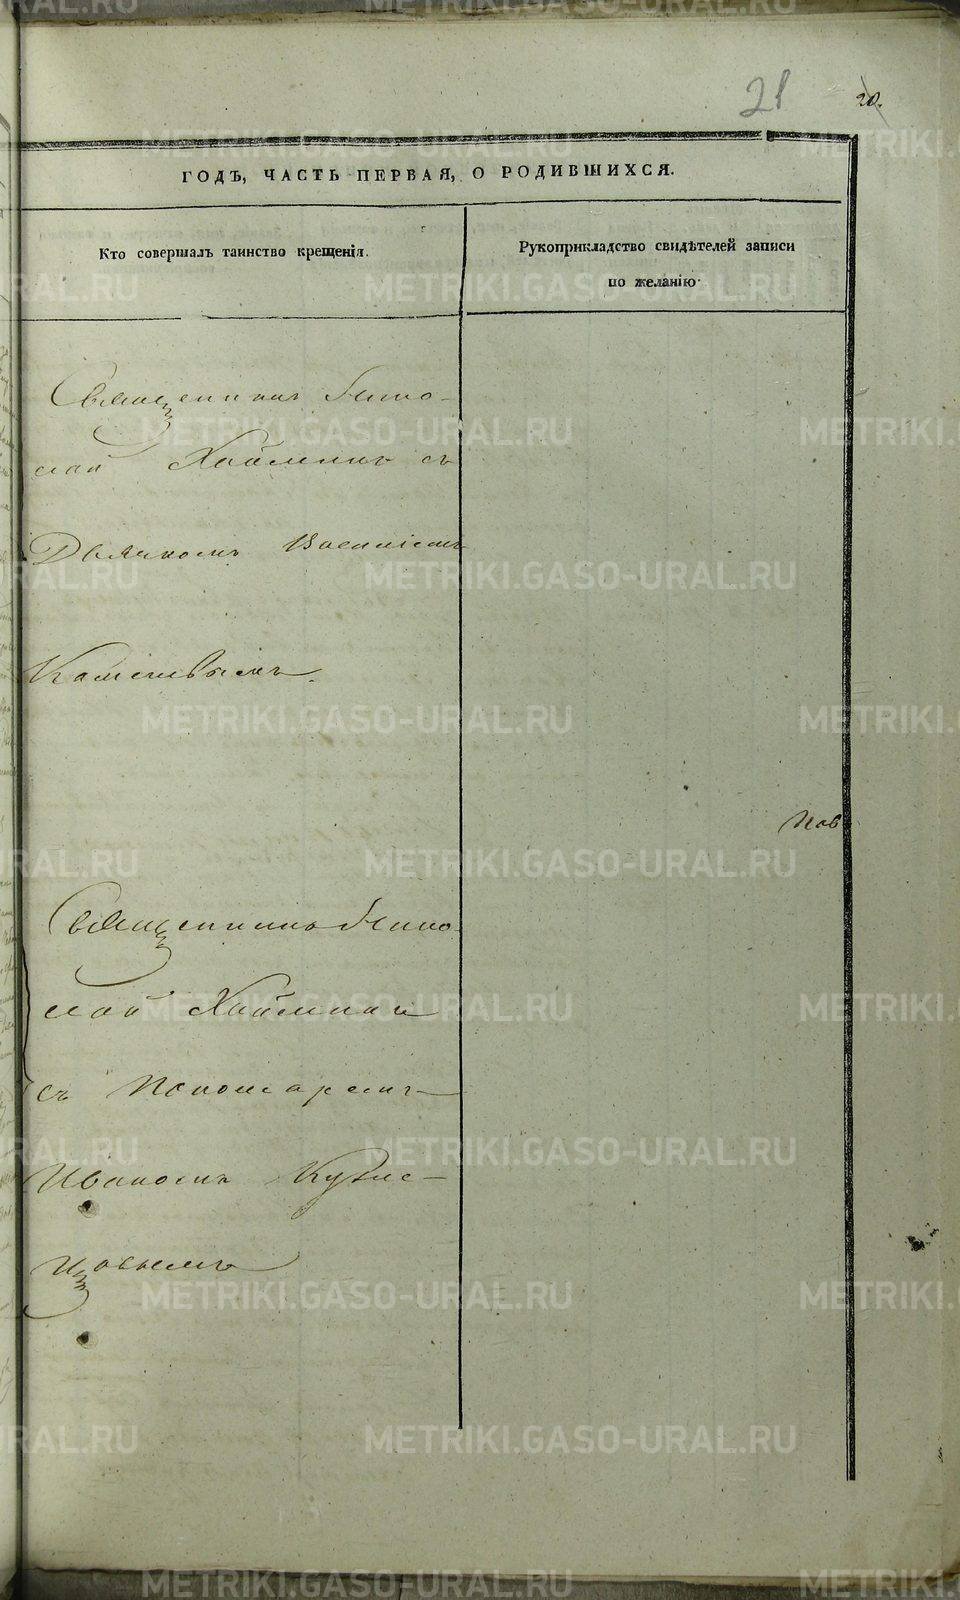 21
20.
ГОДЪ, ЧАСТЬ ПЕРВАЯ, О РОДИВШИХСЯ.
Кто совершалъ таинство крещенія.
Рукоприкладство свидѣтелей записи
по желанію
Священникъ Нико-
лай съ
Дьячкомъ Василіемъ
Священникъ Нико
лай
съ Пономаремъ
Иваномъ Кузне-
цовымъ
METRIKI.GASO-URAL.RU